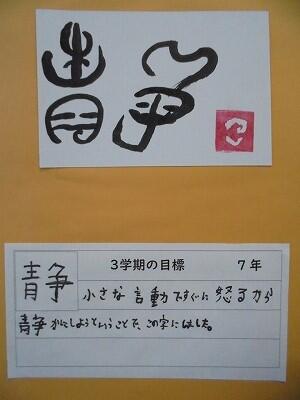 靜
静
3学期の目標 7年
小さな言動ですぐに怒るから
静かにしようということで、この字にしました。